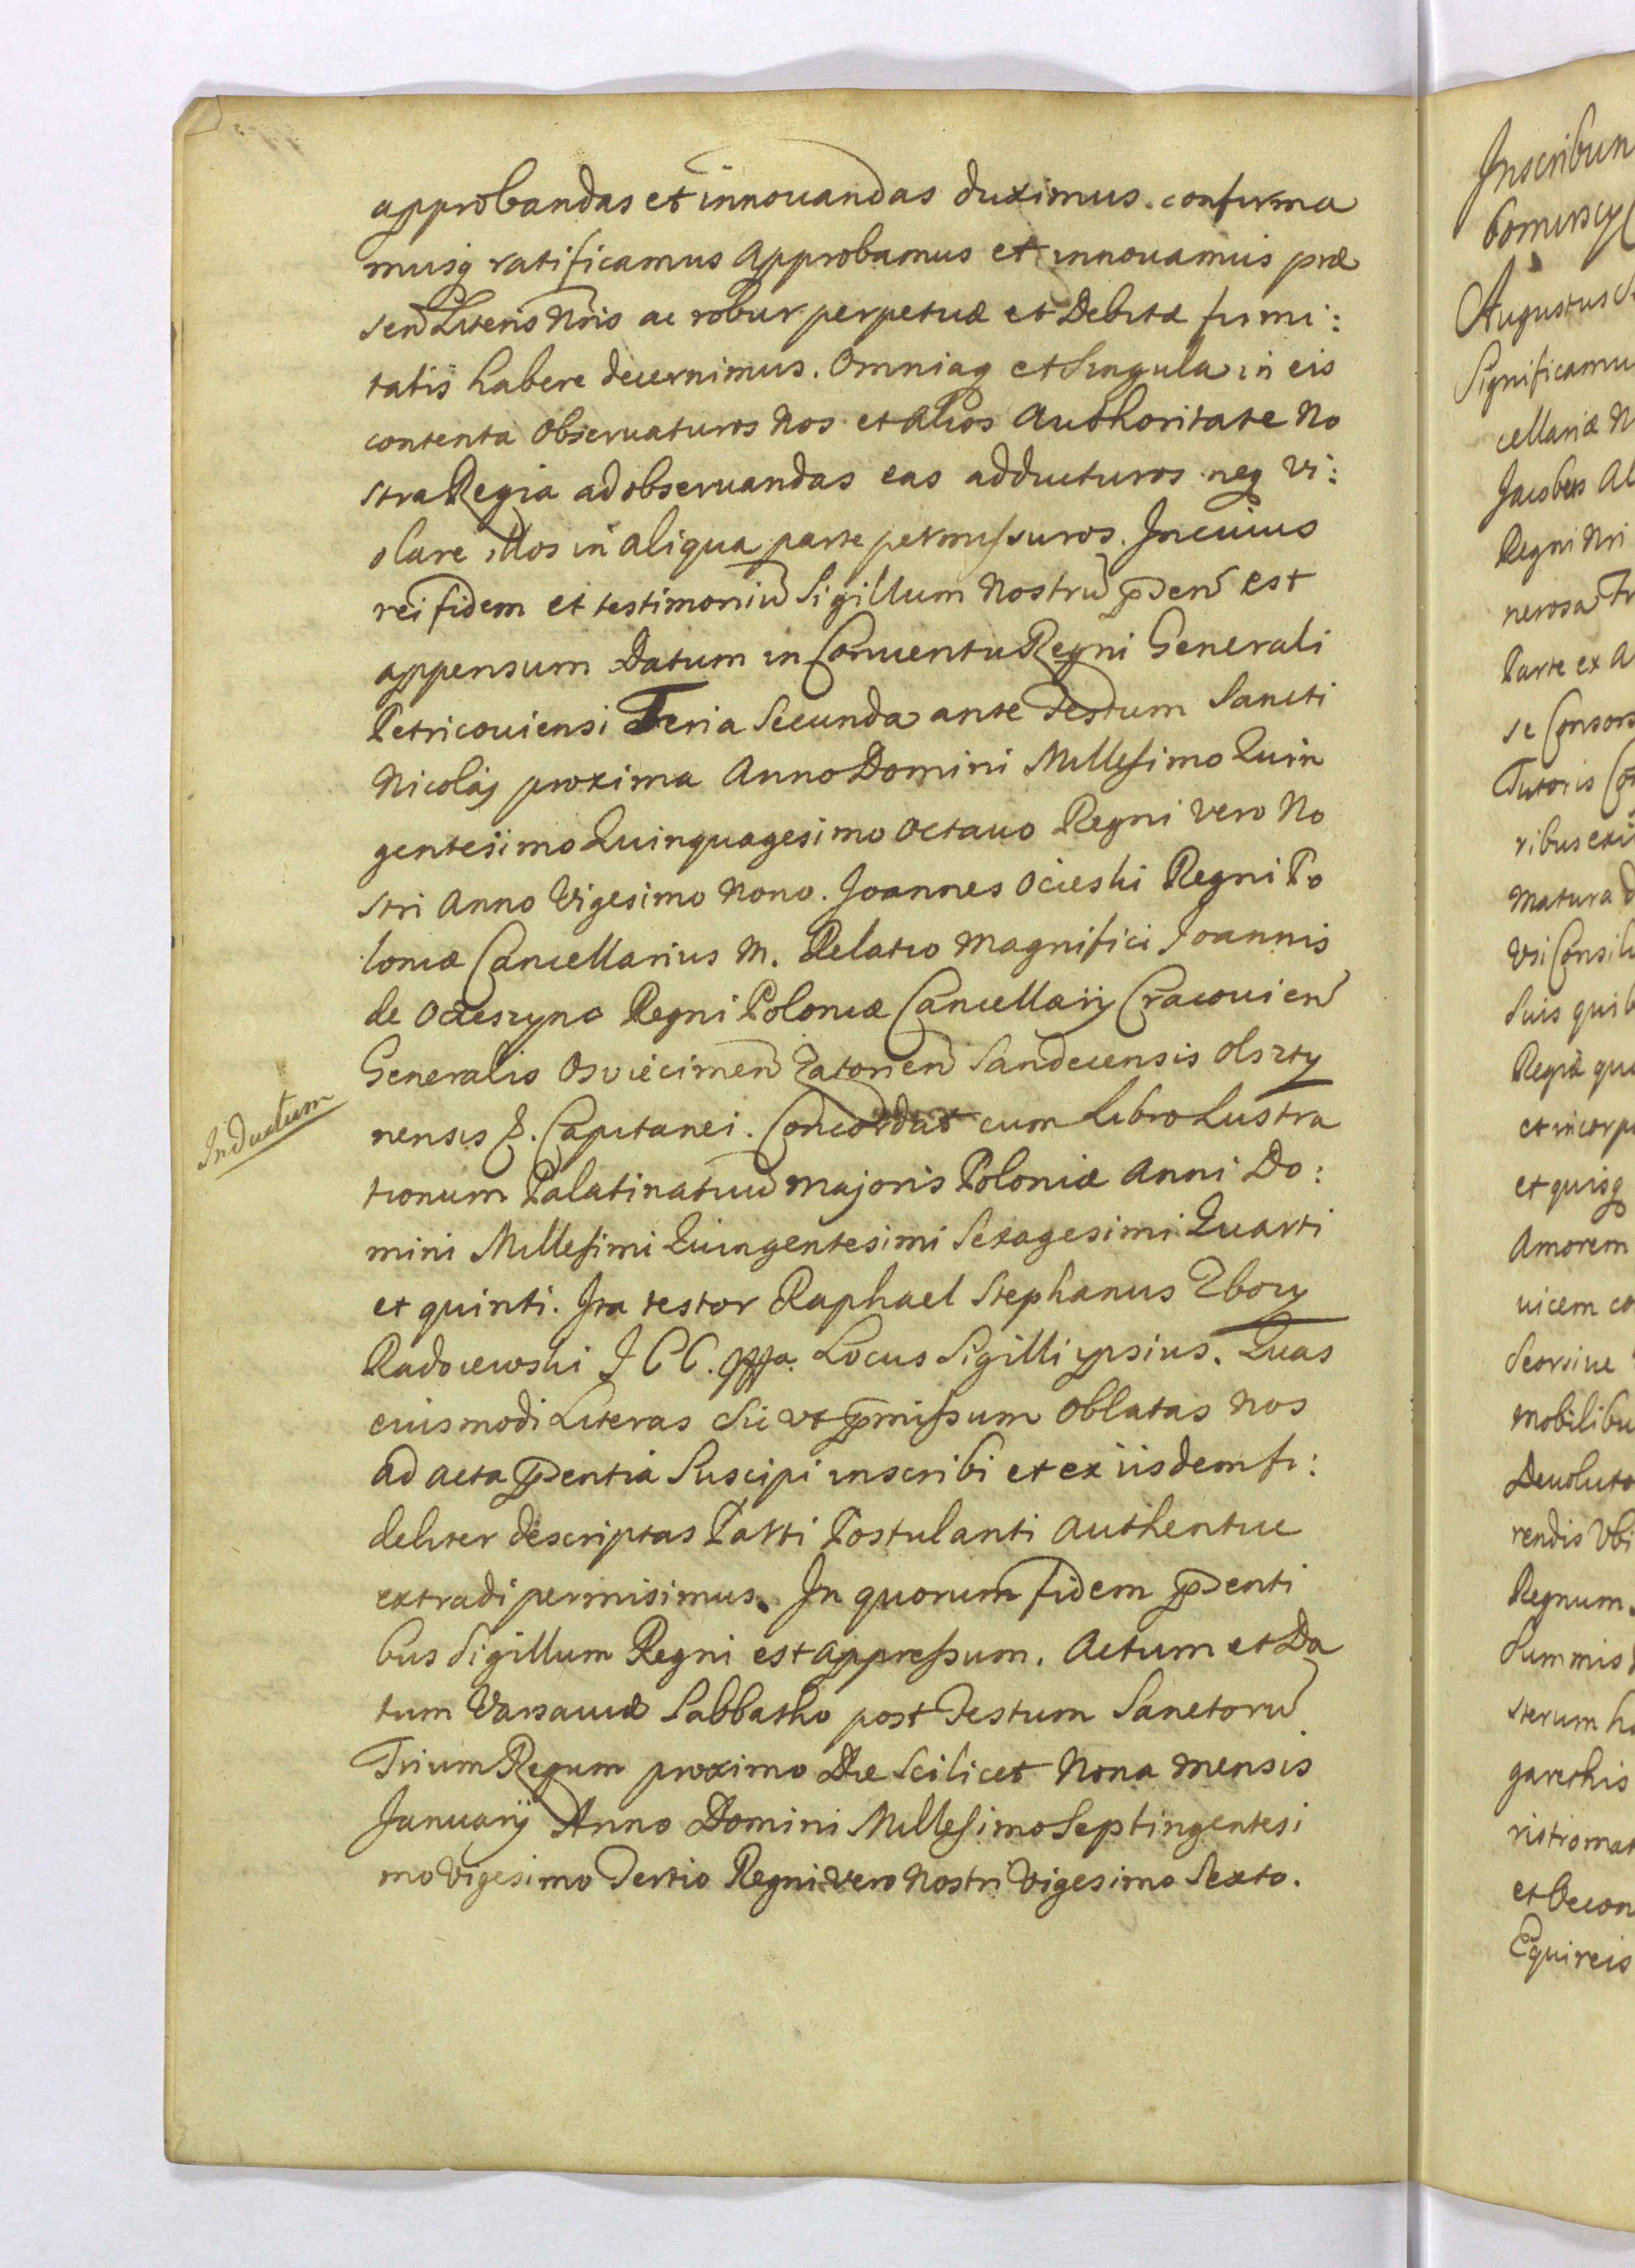 approbandas et innouandas duximus. confirma
musq ratificamus approbamus et innouamus præ
sen Literis Nris ac robur perpetuæ et Debitæ firmi:
tatis habere decernimus. Omniaq et Singula in eis
contenta Observaturos Nos et alios Authoritate No
stra Regia ad observandas eas adducturos neq vi:
olare illos in aliqua parte permissuros. In cuius
rei fidem et testimoniu Sigillum Nostru pñden est
appensum Datum in Conventu Regni Generali
Petricoviensi Feria Secunda ante Festum Sancti
Nicolaj proxima Anno Domini Millesimo Quin
gentesimo Quinquagesimo octauo Regni vero No
stri Anno Vigesimo Nono. Joannes Ocieski Regni Po
loniæ Cancellarius M. Relatio Magnifici Joannis
de Ocieszyno Regni Poloniæ Cancellarij Cracovien
Generalis Osviecimen Zatorien Sandecensis Olszty
nensis &. Capitanei. Concordat cum Libro Lustra
tionum Palatinatuu Majoris Poloniæ Anni Do:
mini Millesimi Quingentesimi Sexagesimi Quarti
et quinti. Ita testor Raphael Stephanus Zbozy
Radoiewski J C C. Locus Sigilli ipsius. Quas
eiusmodi Literas Sic vt pmissum oblatas Nos
ad acta pñdentia Suscipi inscribi et ex iisdem fi:
deliter descriptas Parti Postulanti authentice
extradi permisimus. In quorum fidem pñdenti
bus Sigillum Regni est appressum. Actum et Da
tum Varsaviæ Sabbatho post Festum Sanctoru
Trium Regum proximo Die Scilicet Nona Mensis
Januarij Anno Domini Millesimo Septingentesi
mo Vigesimo Tertio Regni vero Nostri Vigesimo Sexto.
Inductum
Inscribun
Augustus
Significamu
cellariæ N
Jacobus Al
Regni Nri
nerosa
Parte ex A
se Consors
Tutoris
ribus
Matura D
Suis quib
Regia qua
et incorp
et quisq
Amorem
uicem co
Seorsiue
Mobilibu
Deuoluto
rendis Vbi
Regnum.
Summis
sterum